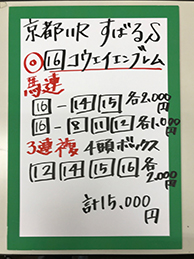 京都11R すばるS
◎16コウエイエンブレム
馬連
16-14 15 各2,000円
16-8 11 12 各1,000円
3連複 4頭ボックス
12 14 15 16 各2,000円
計15,000円